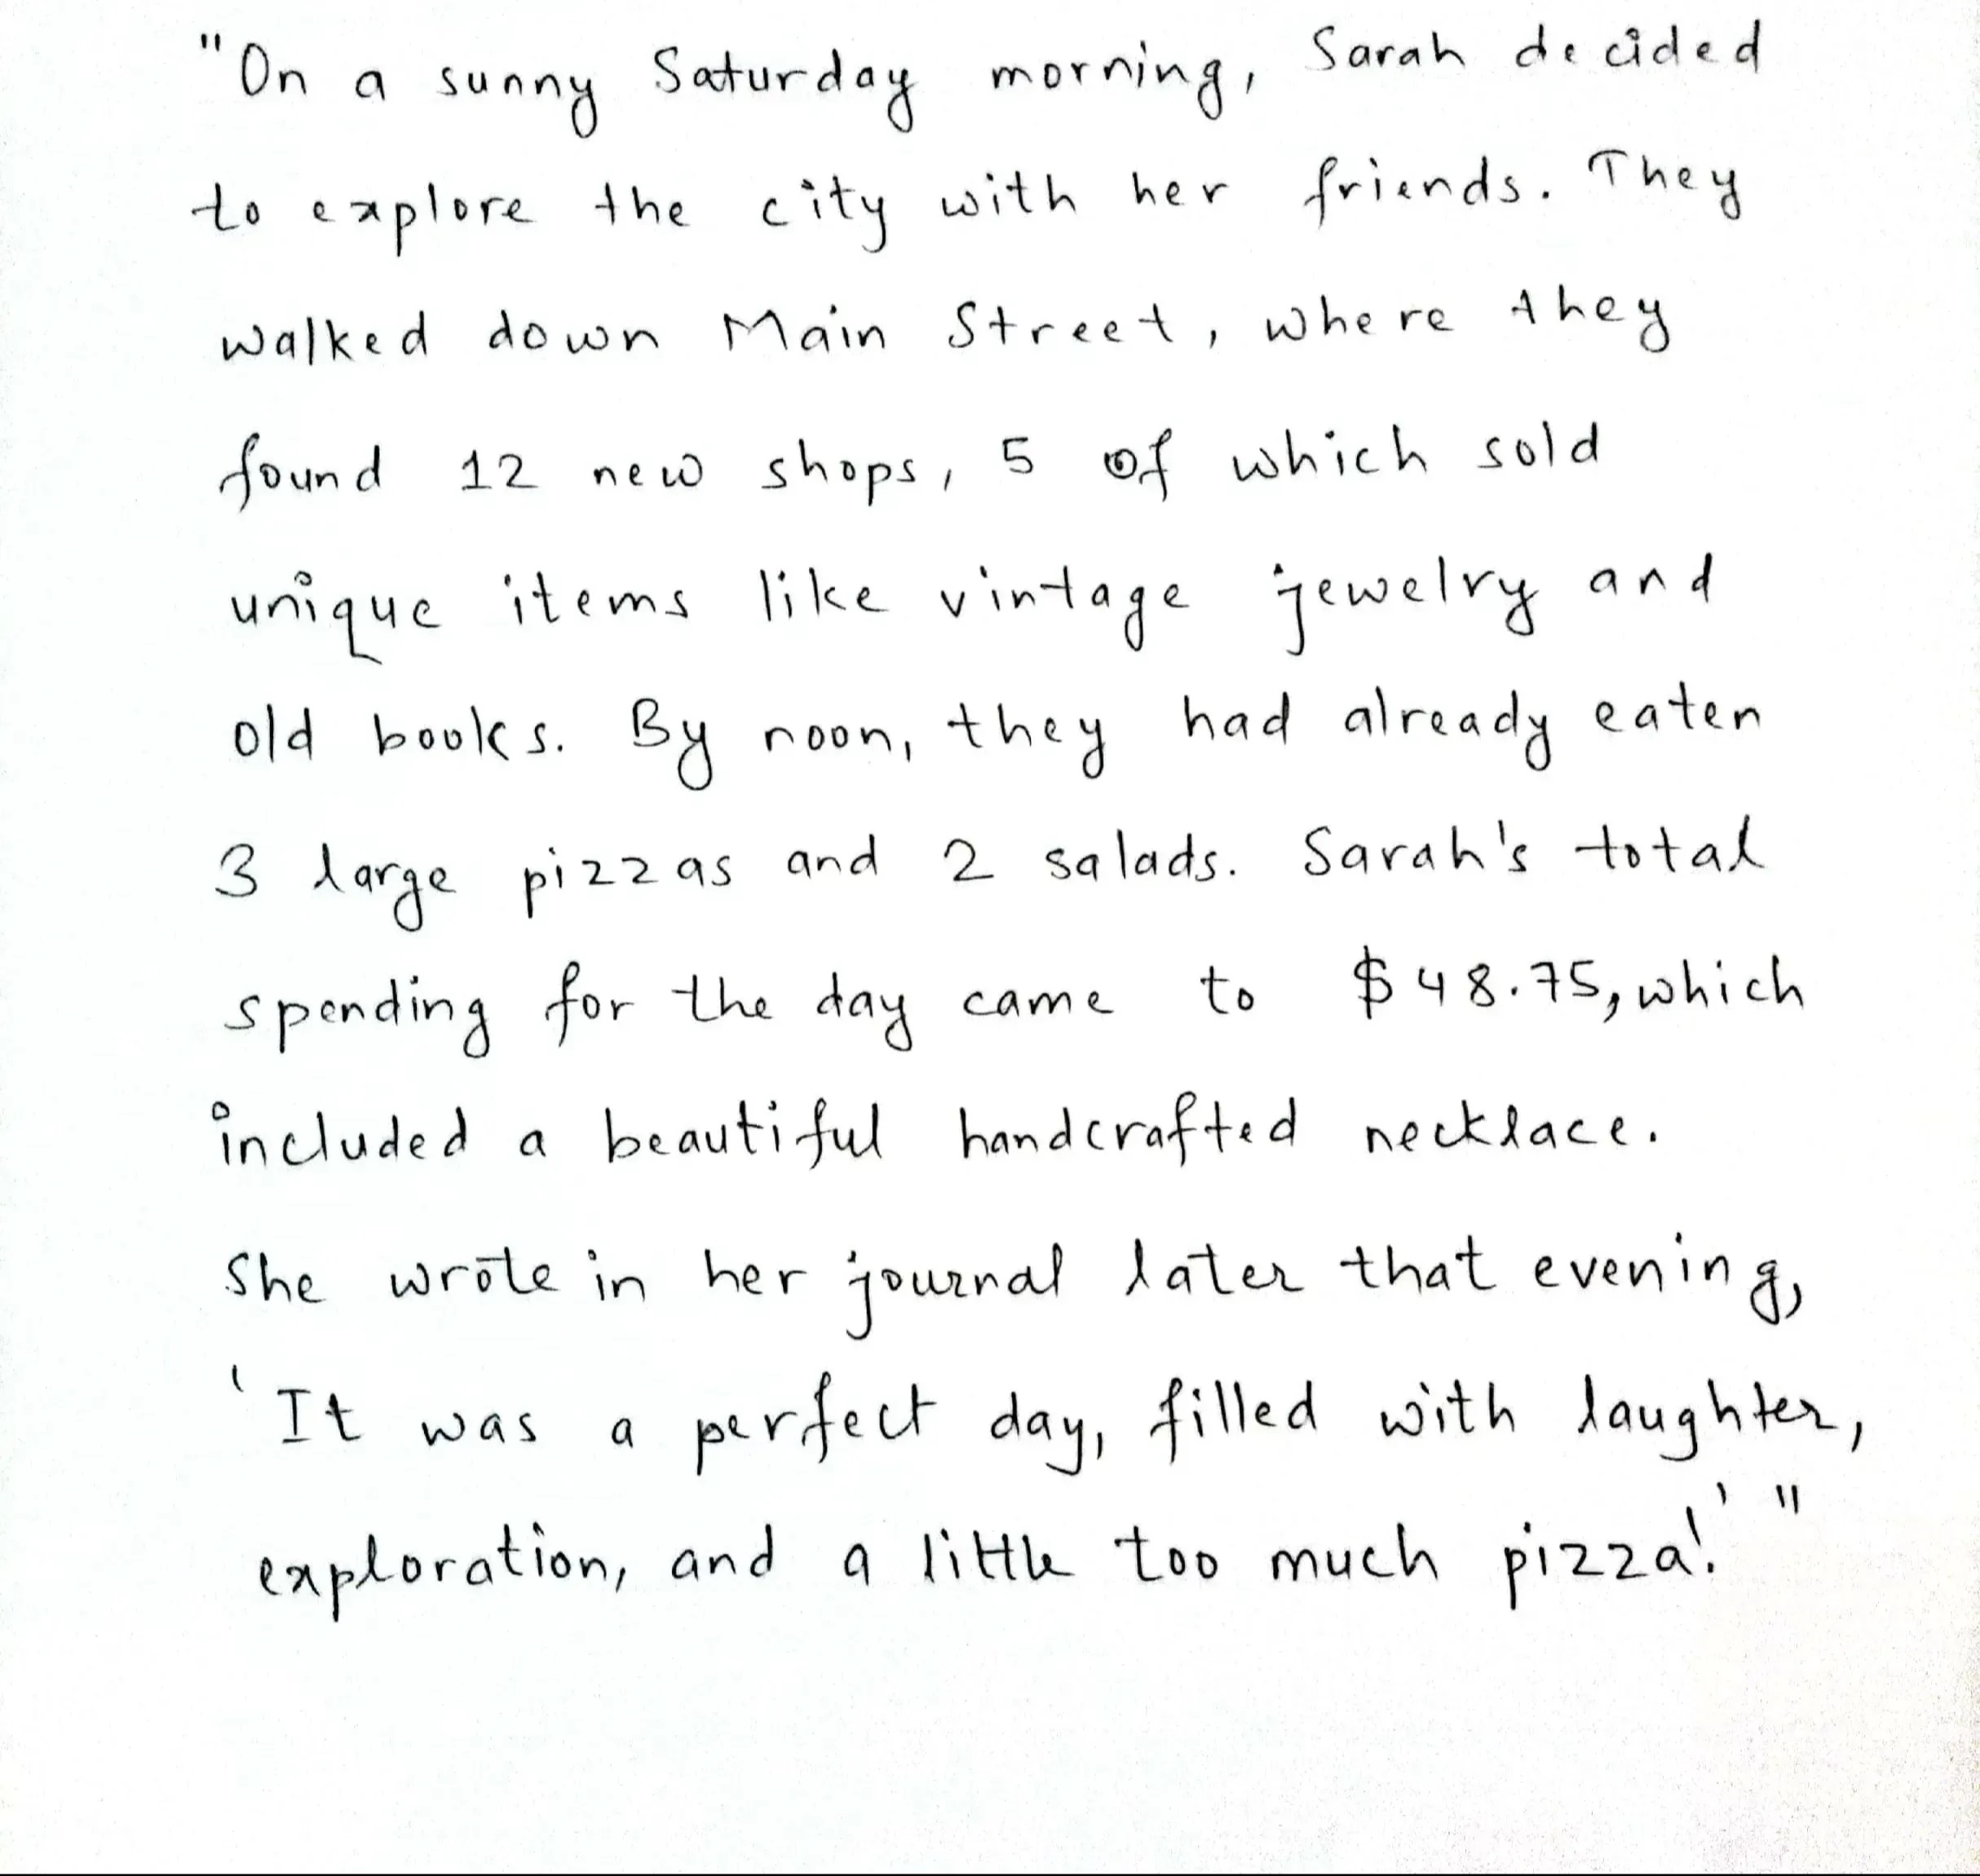 "On a sunny Saturday morning, Sarah decided
to explore the city with her friends. They
walked down Main Street, where they
found 12 new shops, 5 of which sold
unique items like vintage jewelry and
old books. By noon, they had already eaten
3 large pizzas and 2 salads. Sarah's total
spending for the day came to $48.75, which
included a beautiful handcrafted necklace.
She wrote in her journal later that evening,
'It was a perfect day, filled with laughter,
exploration, and a little too much pizza!'"